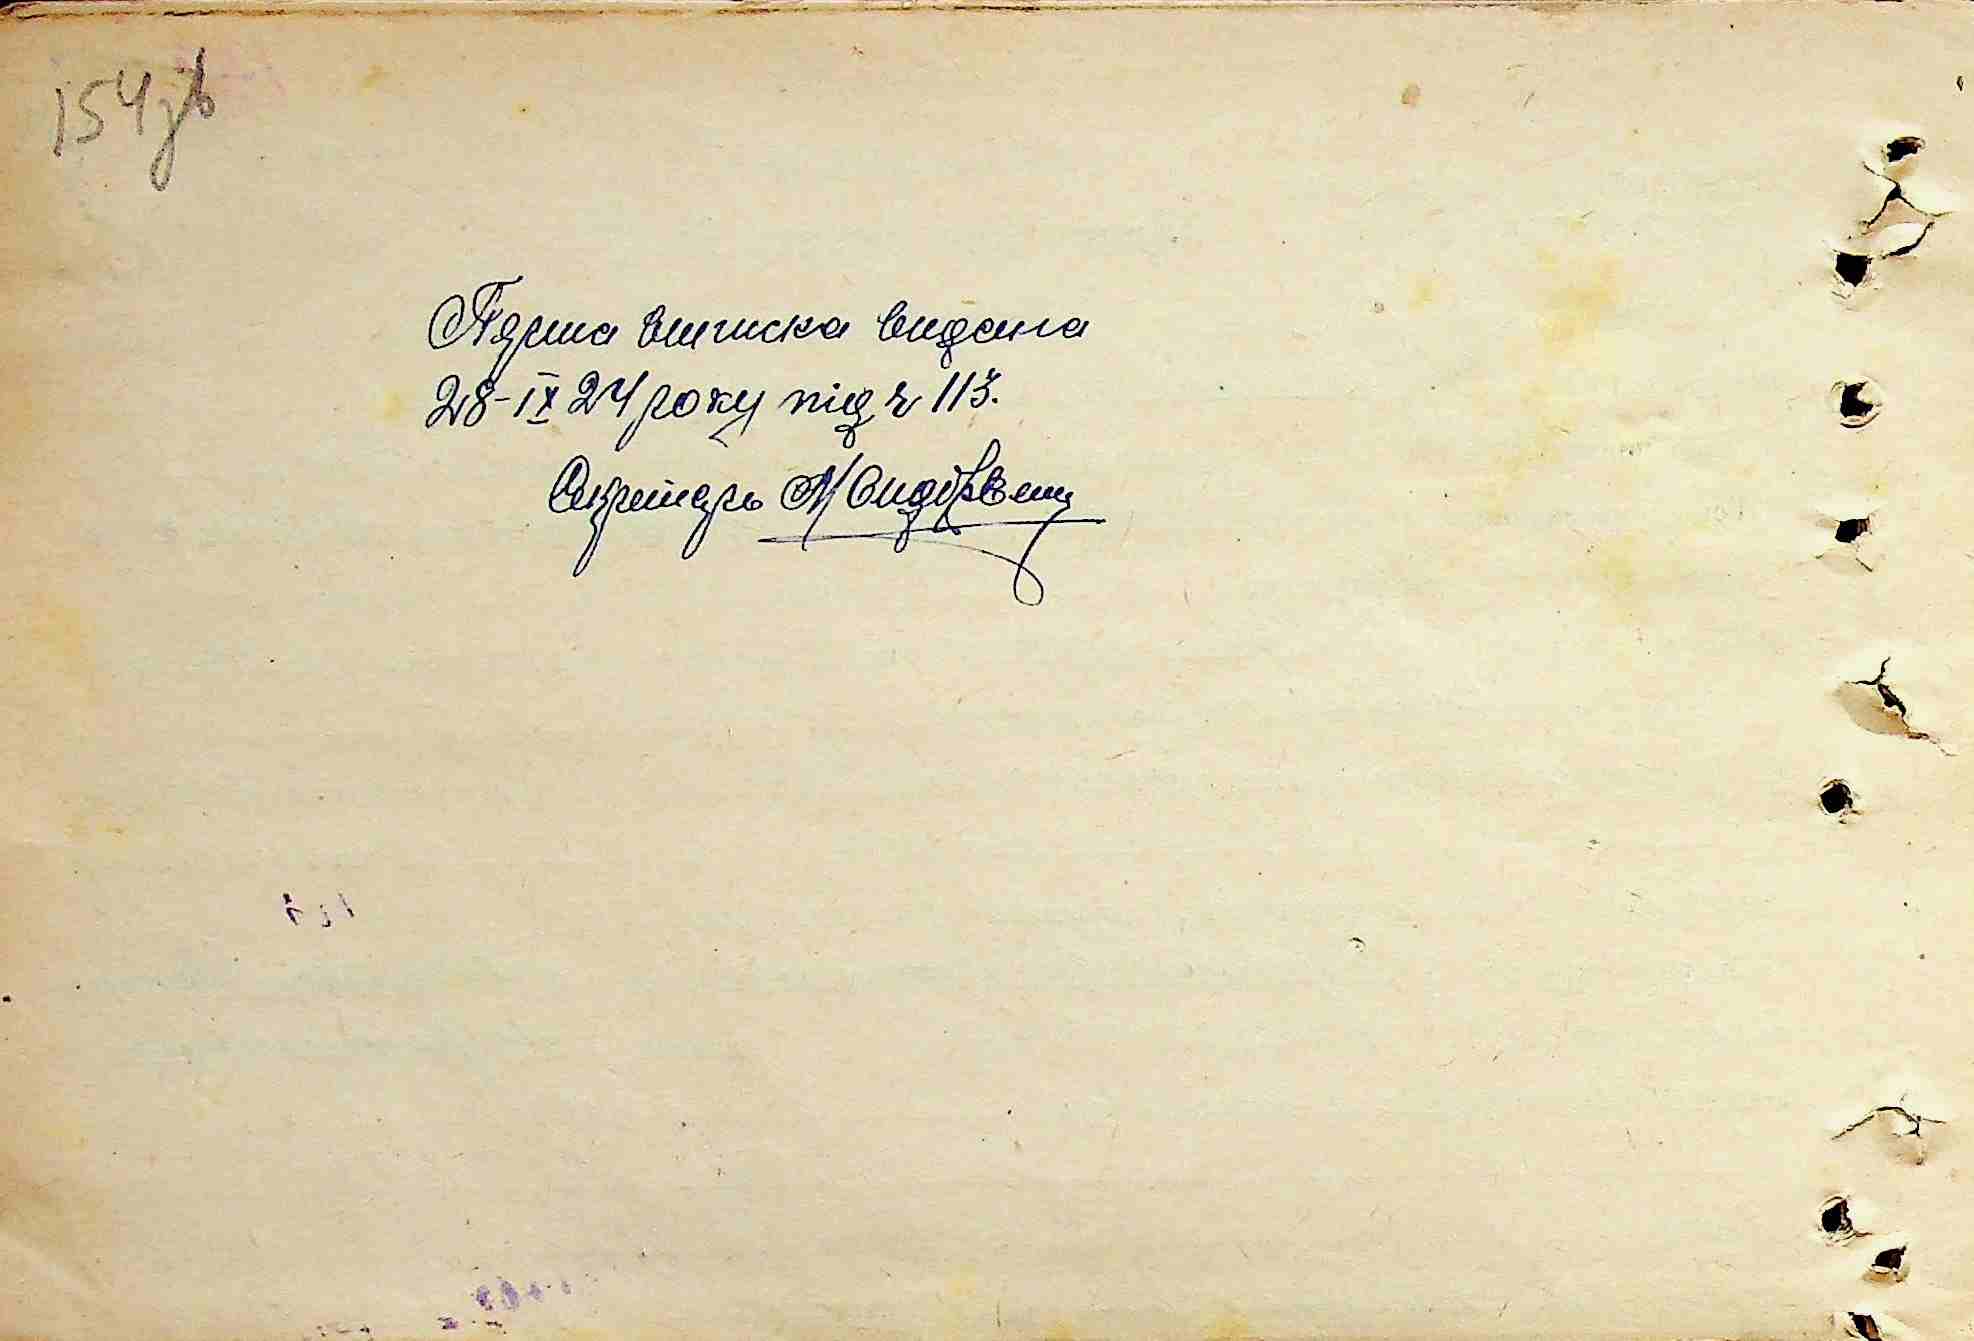 154зв
Перша виписка видана
28-IX 24 року під ч 113.
Секретарь